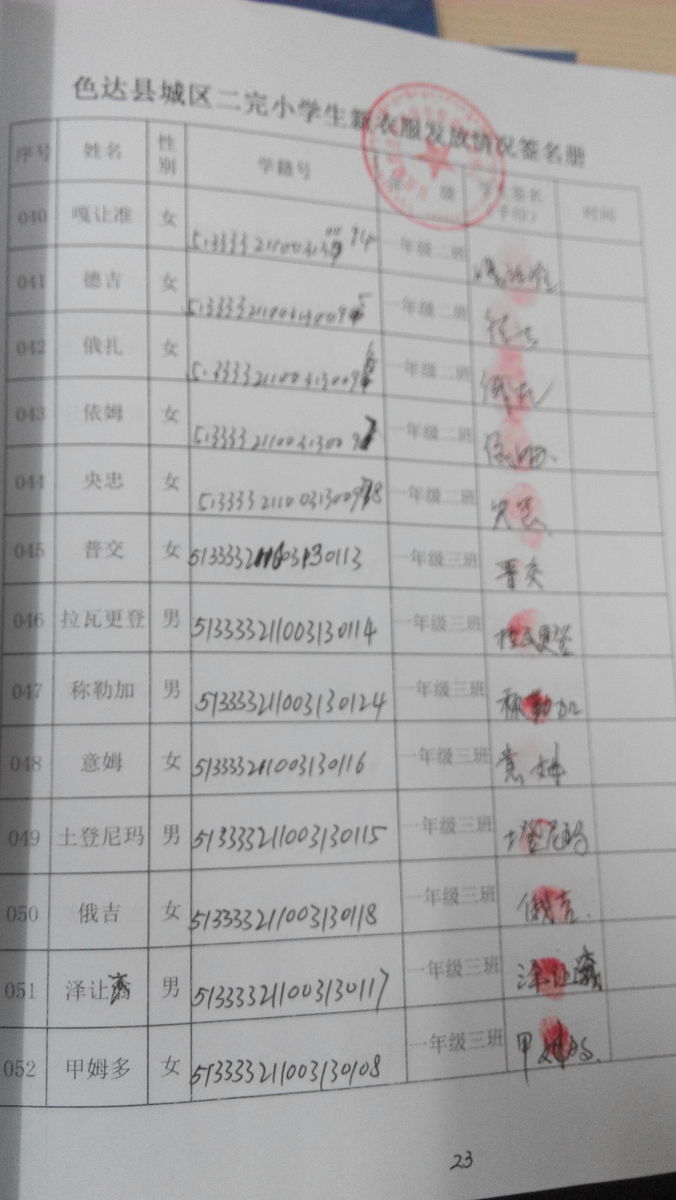 色达县城区二完小学生新衣服发放情况签名册
序号 姓名 性别 学籍号 班级 学生签名（手印） 时间
040 嘎让准 女 一年级二班 嘎让准
041 德吉 女 513333211003130095 一年级二班 德吉
042 俄扎 女 513333211003130096 一年级二班 俄扎
043 依姆 女 513333211003130097 一年级二班 依姆
044 央忠 女 513333211003130098 一年级二班 央忠
045 普交 女 513333211003130113 一年级三班 普交
046 拉瓦更登 男 513333211003130114 一年级三班 拉瓦更登
047 称勒加 男 513333211003130124 一年级三班 称勒加
048 意姆 女 513333211003130116 一年级三班 意姆
049 土登尼玛 男 513333211003130115 一年级三班 土登尼玛
050 俄吉 女 513333211003130118 一年级三班 俄吉
051 泽让 男 513333211003130117 一年级三班 泽让
052 甲姆多 女 513333211003130108 一年级三班 甲姆多
23